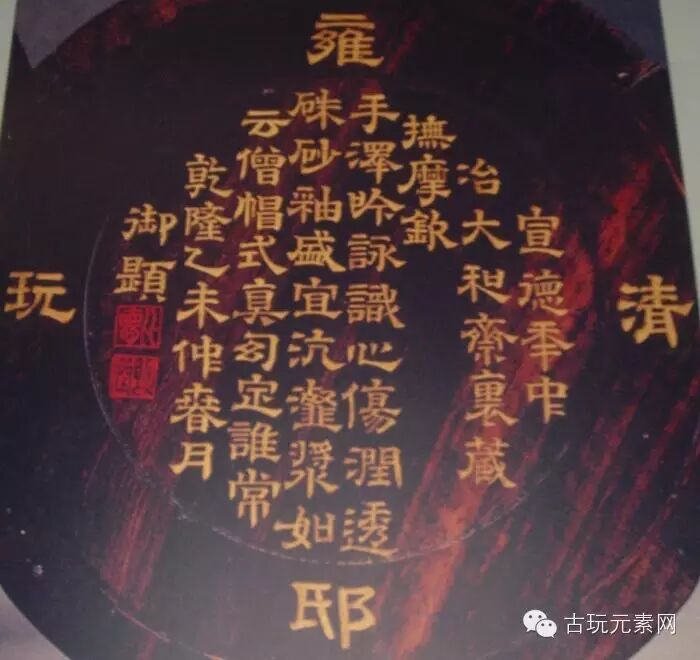 雍
邸
清
玩
宣德秊中
冶大和齋裏藏
撫摩欽
手澤吟詠識心傷潤透
硃砂釉盛宜沆瀣漿如
云僧帽式真幻定誰常
乾隆乙未仲春月
御題
古玩元素网